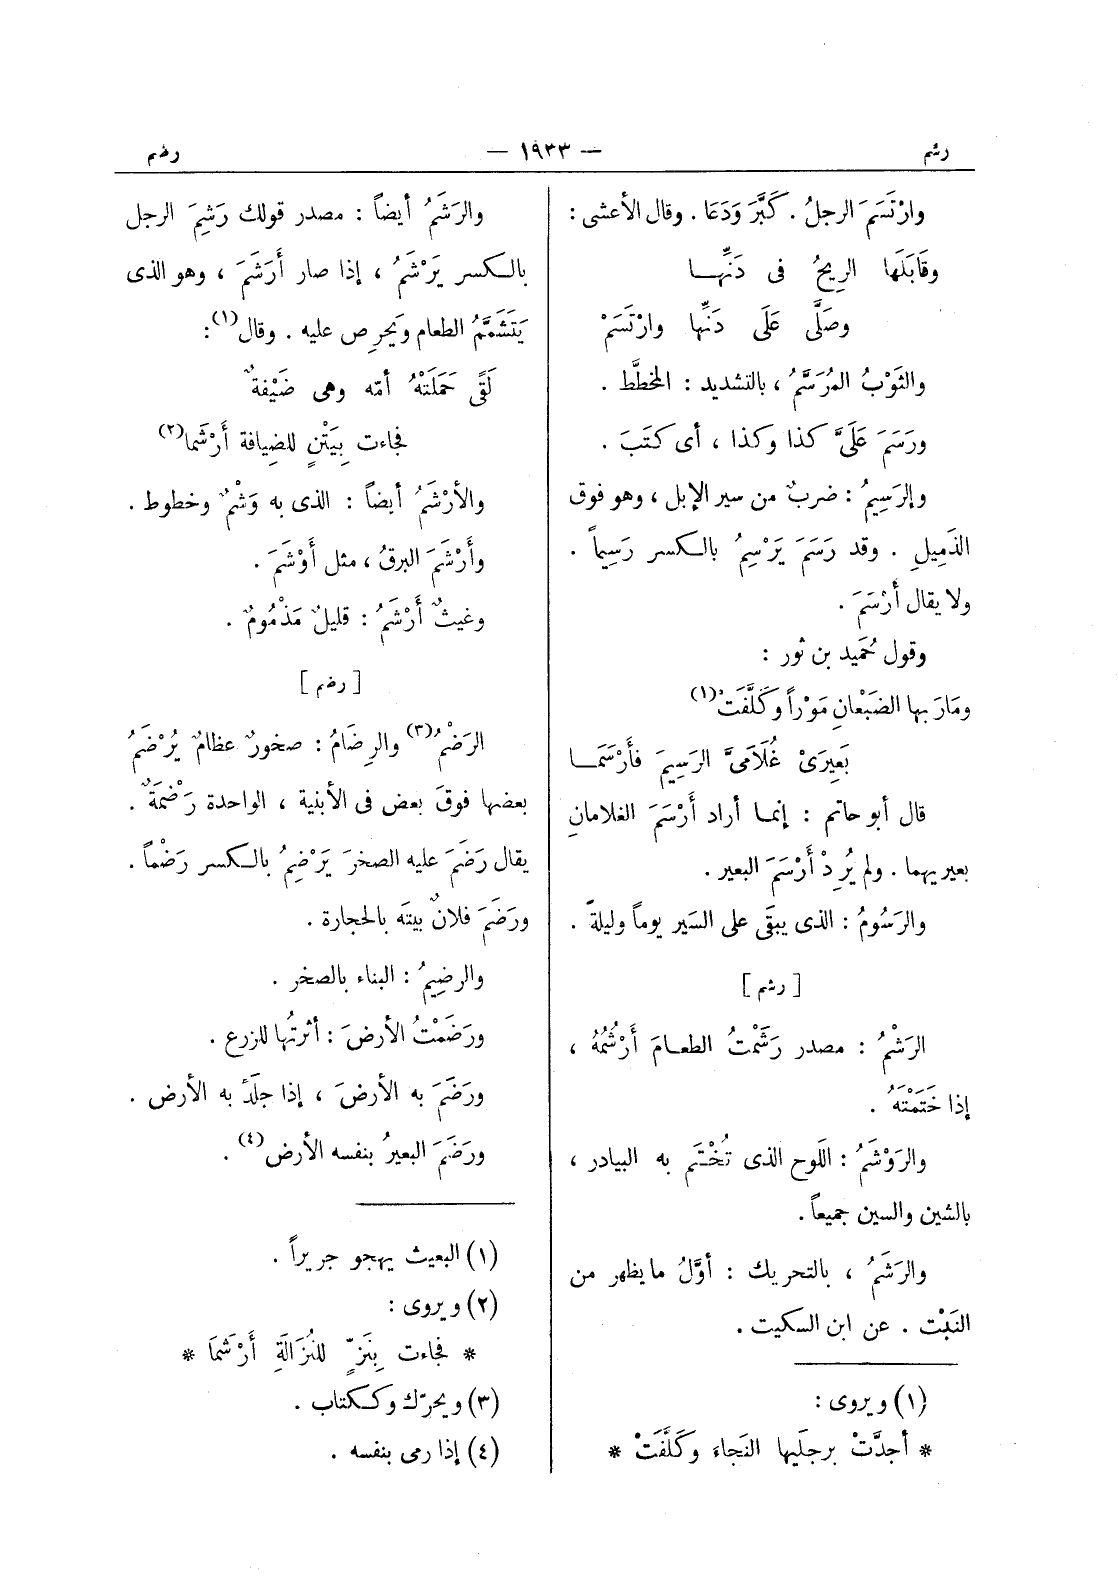 رشم — ١٩٣٣ — رضم
وارْتَسَمَ الرجلُ . كَبَّرَ وَدَعَا . وقال الأعشى :
وقَابَلَها الرِيحُ فى دَنِّهـا
وصَلَّى عَلَى دَنِّها وارْتَسَمْ
والثَوْبُ المُرَسَّمُ ، بالتشديد : المخطَّط .
ورَسَمَ عَلَىَّ كذا وكذا ، أى كتَبَ .
والرَسِيمُ : ضربٌ من سير الإبل ، وهو فوق
الذَمِيلِ . وقد رَسَمَ يَرْسِمُ بالكسر رَسِيماً .
ولا يقال أَرْسَمَ .
وقول حُمَيد بن ثور :
ومَارَ بها الضَبْعانِ مَوْراً وكَلَّفَتْ(١)
بَعِيرَىْ غُلَامَىَّ الرَسِيمَ فأَرْسَمَـا
قال أبو حاتم : إنمـا أراد أَرْسَمَ الغلامانِ
بعيريهما . ولم يُرِدْ أَرْسَمَ البعير .
والرَسُومُ : الذى يبقَى على السَير يوماً وليلةً .
[ رشم ]
الرَشْمُ : مصدر رَشَمْتُ الطعـامَ أَرْشُمُهُ ،
إذا خَتَمْتَهُ .
والرَوْشَمُ : اللَوح الذى تُخْتَم به البيادر ،
بالشين والسين جميعاً .
والرَشَمُ ، بالتحريك : أوَّلُ ما يظهر من
النَبْت . عن ابن السكيت .
(١) ويروى :
* أجدَّتْ برجلَيها النَجاءَ وكَلَّفَتْ *
والرَشَمُ أيضاً : مصدر قولك رَشِمَ الرجل
بالـكسر يَرْشَمُ ، إذا صار أَرْشَمَ ، وهو الذى
يَتَشَمَّمُ الطعام ويَحرِص عليه . وقال(١) :
لَقًى حَمَلَتْهُ أمّه وهى ضَيْفةٌ
فجاءت بِيَتْنٍ للضِيافة أَرْشَما(٢)
والأَرْشَمُ أيضاً : الذى به وَشْمٌ وخطوط .
وأَرْشَمَ البرقُ ، مثل أَوْشَمَ .
وغيثٌ أَرْشَمُ : قليلٌ مَذْمُومٌ .
[ رضم ]
الرَضْمُ(٣) والرِضَامُ : صخورٌ عظامٌ يُرْضَمُ
بعضها فوقَ بعض فى الأبنية ، الواحدة رَضْمَةٌ .
يقال رَضَمَ عليه الصخرَ يَرْضِمُ بالـكسر رَضْماً .
ورَضَمَ فلانٌ بيتَه بالحجارة .
والرضِيمُ : البناء بالصخر .
ورَضَمْتُ الأرضَ : أثرتُها للزرع .
ورَضَمَ به الأرضَ ، إذا جلَدَ به الأرض .
ورَضَمَ البعيرُ بنفسه الأرض(٤) .
(١) البعيث يهجو جريراً .
(٢) ويروى :
* فجاءت بِنَزٍّ للنُزَالَةِ أَرْشَمَا *
(٣) ويحرّك وككتاب .
(٤) إذا رمى بنفسه .